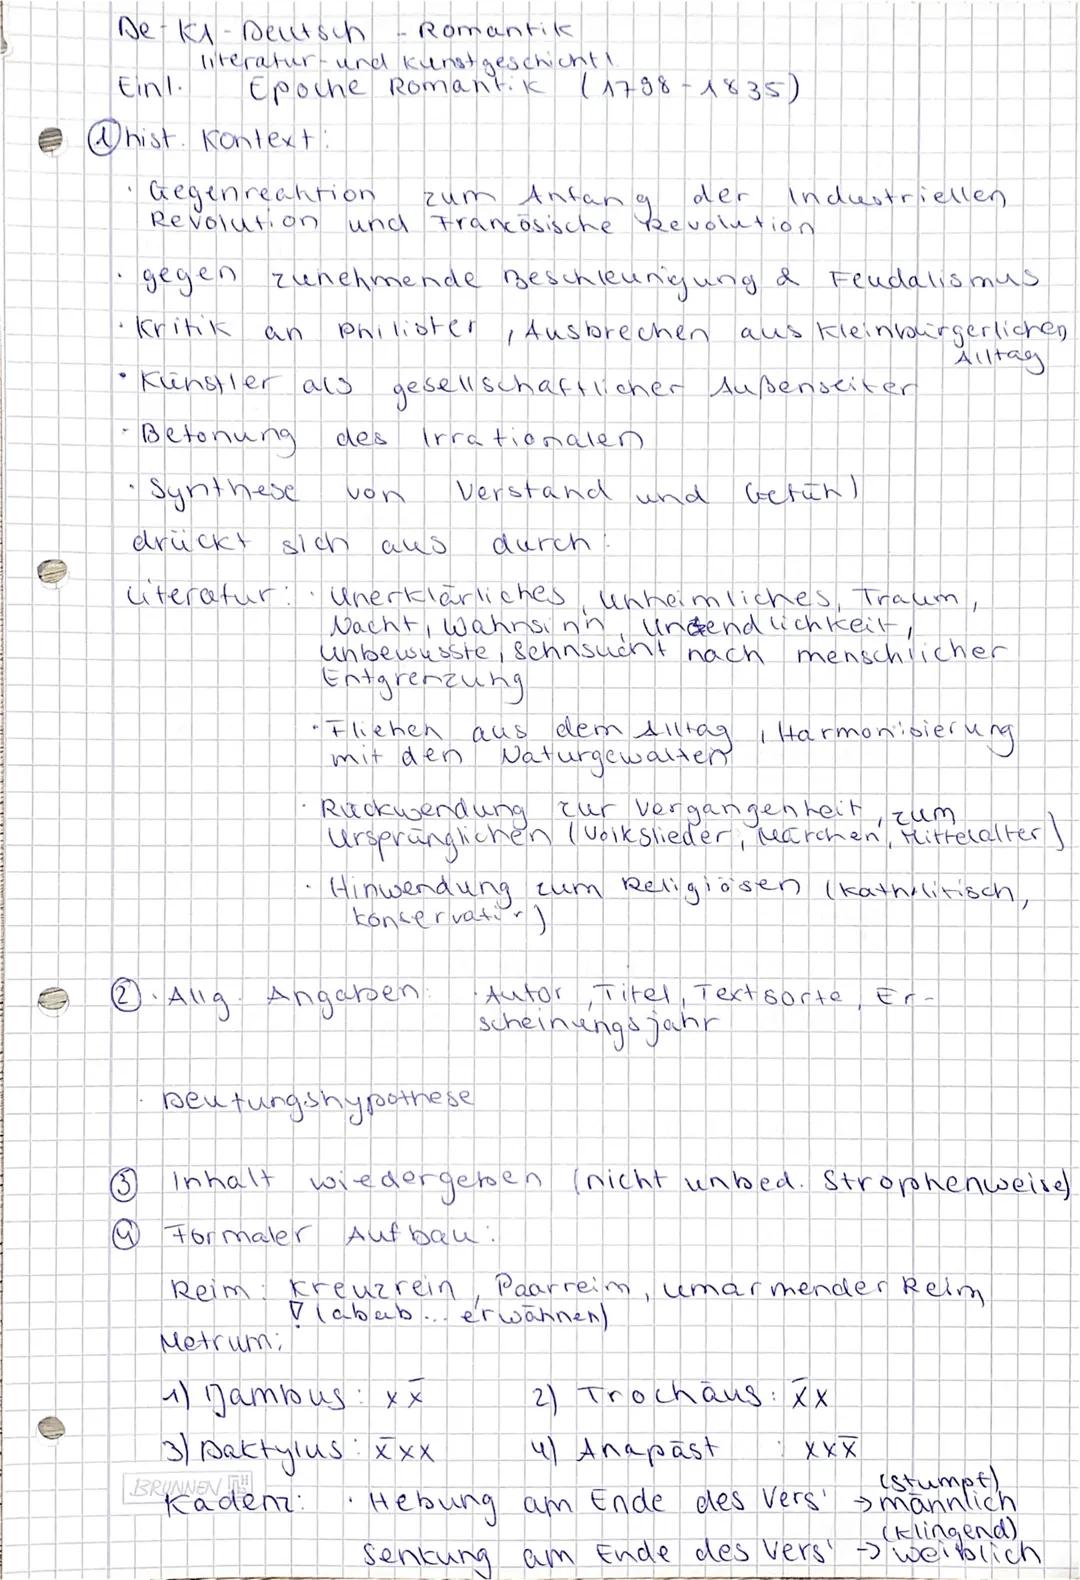 De-K1-Deutsch - Romantik
literatur- und kunstgeschichtl.
Einl. Epoche Romantik (1798-1835)
① hist. Kontext:
· Gegenreaktion zum Anfang der Industriellen
Revolution und Francösische Revolution
· gegen zunehmende Beschleunigung & Feudalismus
· Kritik an Philister, Ausbrechen aus kleinbürgerlichen
Alltag
· Künstler als gesellschaftlicher Außenseiter
· Betonung des Irrationalen
· Synthese von Verstand und Gefühl
drückt sich aus durch:
Literatur: · Unerklärliches, Unheimliches, Traum,
Nacht, Wahnsinn, Unendlichkeit,
Unbewusste, Sehnsucht nach menschlicher
Entgrenzung
· Fliehen aus dem Alltag, Harmonisierung
mit den Naturgewalten
· Rückwendung zur Vergangenheit, zum
Ursprünglichen (Volkslieder, Märchen, Mittelalter)
· Hinwendung zum Religiösen (katholitisch,
konservativ)
② · Allg. Angaben: · Autor, Titel, Textsorte, Er-
scheinungsjahr
· Deutungshypothese
③ Inhalt wiedergeben (nicht unbed. Strophenweise)
④ Formaler Aufbau:
Reim: Kreuzrein, Paarreim, umarmender Reim
(abab... erwähnen)
Metrum:
1) Jambus: x x̄ 2) Trochäus: x̄x
3) Daktylus: x̄xx 4) Anapäst : xxx̄
BRUNNEN
(stumpf)
Kadenz: · Hebung am Ende des Vers' → männlich
(klingend)
Senkung am Ende des Vers' → weiblich